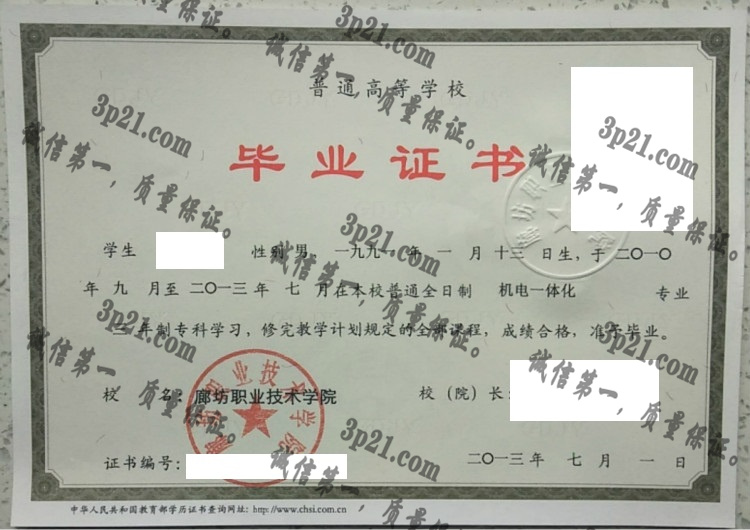 普通高等学校
毕业证书
学生 性别 男，一九九一 年 一 月 十三 日生，于 二〇一〇
年 九 月至 二〇一三 年 七 月在本校普通全日制 机电一体化 专业
三 年制专科学习，修完教学计划规定的全部课程，成绩合格，准予毕业。
校 名：廊坊职业技术学院 校（院）长：
证书编号： 二〇一三 年 七 月 一 日
中华人民共和国教育部学历证书查询网址：http://www.chsi.com.cn
廊坊职业技术学院
3p21.com
诚信第一，质量保证。
3p21.com
诚信第一，质量保证。
3p21.com
诚信第一，质量保证。
3p21.com
诚信第一，质量保证。
3p21.com
诚信第一，质量保证。
3p21.com
诚信第一，质量保证。
3p21.com
诚信第一，质量保证。